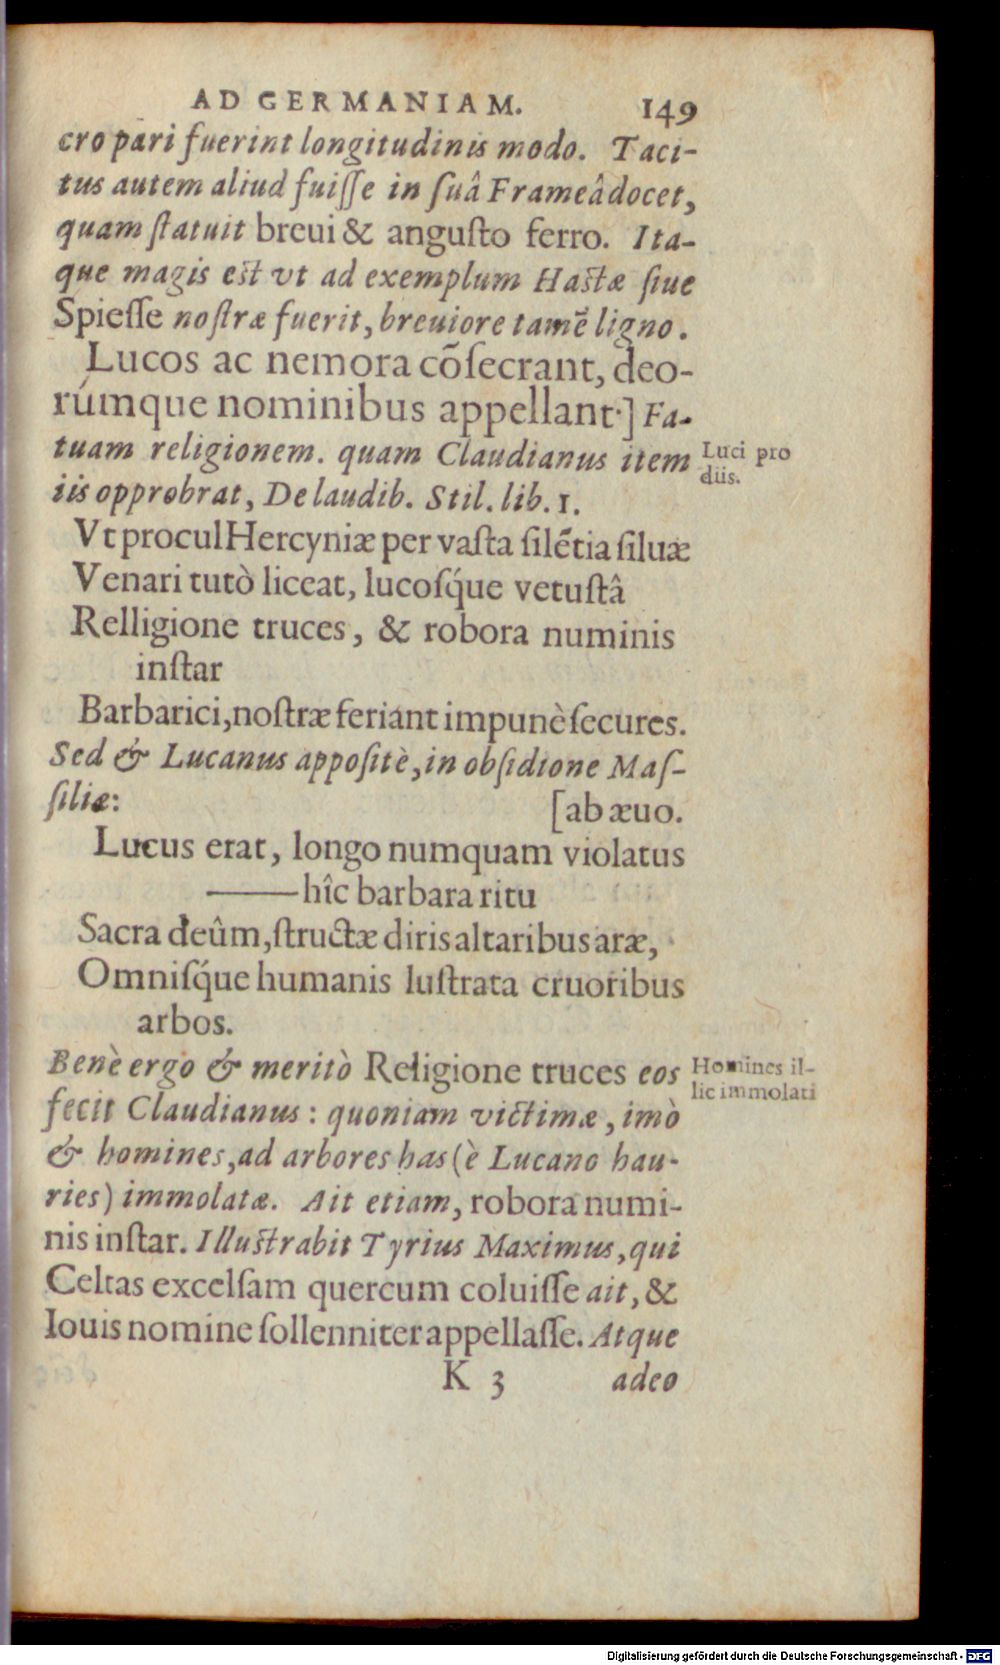 AD GERMANIAM. 149
cro pari fuerint longitudinis modo. Taci-
tus autem aliud fuiſſe in ſuâ Frameâ docet,
quam ſtatuit breui & anguſto ferro. Ita-
que magis eſt vt ad exemplum Haſtæ ſiue
Spieſſe noſtræ fuerit, breuiore tamẽ ligno.
Lucos ac nemora cõſecrant, deo-
rúmque nominibus appellant.] Fa-
tuam religionem. quam Claudianus item
Luci pro
diis.
iis opprobrat, De laudib. Stil. lib. 1.
Vt procul Hercyniæ per vaſta ſilẽtia ſiluæ
Venari tutò liceat, lucoſq́ue vetuſtâ
Relligione truces, & robora numinis
inſtar
Barbarici, noſtræ feriant impunè ſecures.
Sed & Lucanus appoſitè, in obſidione Maſ-
ſiliæ: [ab æuo.
Lucus erat, longo numquam violatus
—— hîc barbara ritu
Sacra deûm, ſtructæ diris altaribus aræ,
Omniſq́ue humanis luſtrata cruoribus
arbos.
Benè ergo & meritò Religione truces eos
Homines il-
lic immolati
fecit Claudianus: quoniam victimæ, imò
& homines, ad arbores has (è Lucano hau-
ries) immolatæ. Ait etiam, robora numi-
nis inſtar. Illuſtrabit Tyrius Maximus, qui
Celtas excelſam quercum coluiſſe ait, &
Iouis nomine ſollenniter appellaſſe. Atque
K 3 adeo
Digitalisierung gefördert durch die Deutsche Forschungsgemeinschaft - DFG